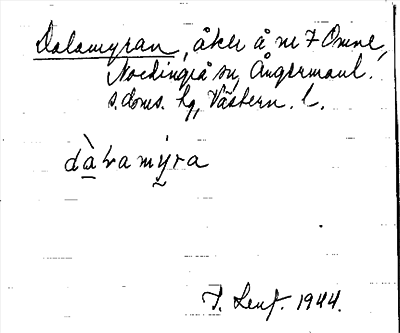 Dalamyran, åker å nr 7 Omne,
Nordingrå sn, Ångermanl.
s. doms. hg, Västern. l.
dàlamy̆ra
J. Lenf. 1944.